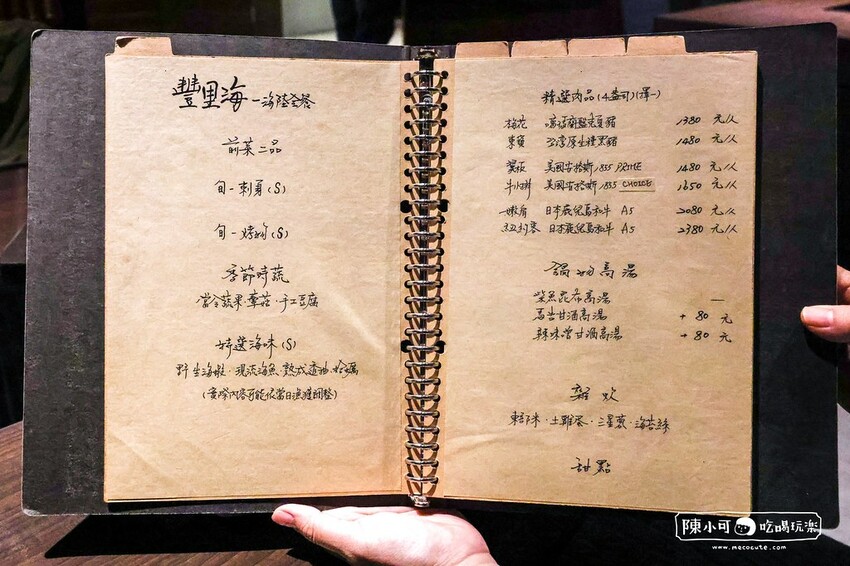 豐里海 - 海陸全餐
前菜二品
旬 - 刺身 (S)
旬 - 烤物 (S)
季節時蔬
當令蔬果．蕈菇．手工豆腐
精選海味 (S)
野生海蝦．現流海魚．熟成
(實際內容可能依當日漁獲調整)
精選肉品 (4盎司) (擇一)
梅花 嘉諾爾豚 1380 元/人
台灣原生種黑豬 1480 元/人
翼板 美國安格斯/855 PRIME 1480 元/人
牛小排 美國安格斯/855 CHOICE 1650 元/人
嫩肩 日本鹿兒島和牛 A5 2080 元/人
紐約客 日本鹿兒島和牛 A5 2380 元/人
鍋物高湯
柴魚昆布高湯 —
馬告甘酒高湯 + 80 元
辣味噌甘酒高湯 + 80 元
雜炊
米．土雞蛋．三星蔥．海苔絲
甜點
陳小可 吃喝玩樂
www.mecocute.com